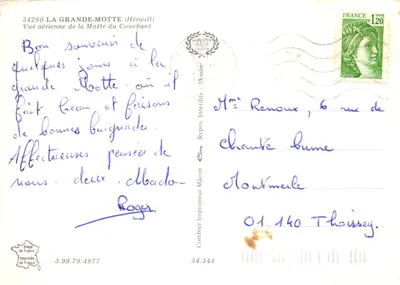 34280 LA GRANDE-MOTTE (Hérault)
Vue aérienne de la Motte du Couchant
Bon souvenir de
quelques jours à la
grande Motte où il
fait beau et faisons
de bonnes
Affectueuses pensées de
nous deux. Mado
Roger
Image de France
Imprimée en France
3.99.79.4977
34.344
Combier Imprimeur Mâcon
Repro. Interdite
FRANCE
1,20
Mme Renoux, 6 rue de
Chante
Montmerle
01 140 Thoissey.